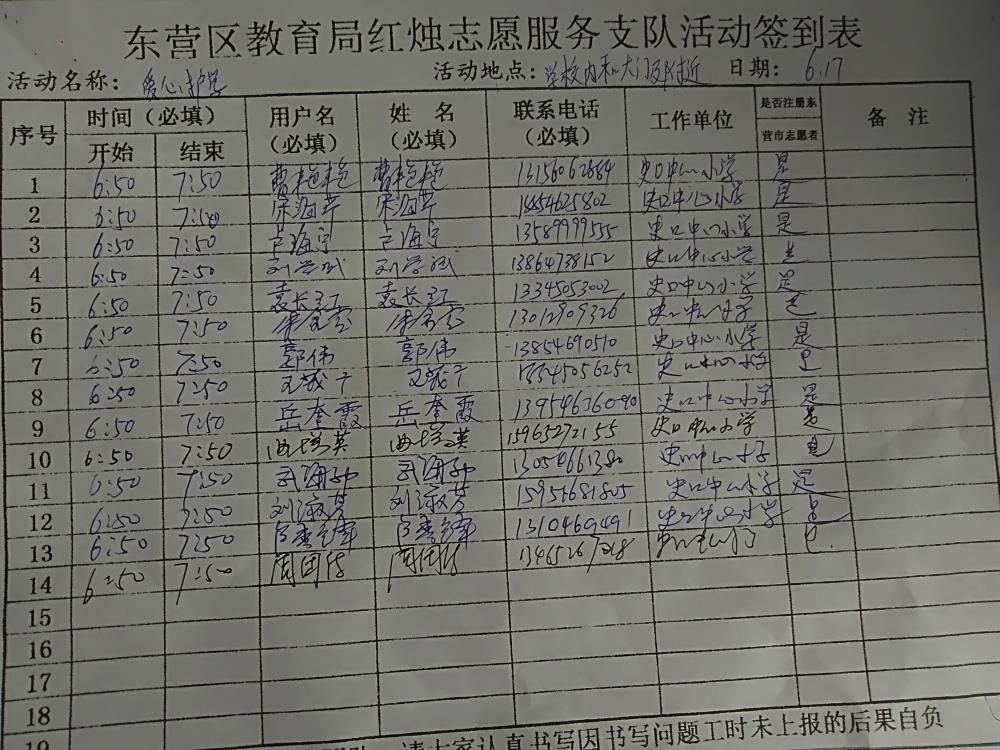 东营区教育局红烛志愿服务支队活动签到表
活动名称：爱心护学 活动地点：学校内和大门及附近 日期：6.17
序号 时间（必填） 用户名（必填） 姓名（必填） 联系电话（必填） 工作单位 是否注册东营市志愿者 备注
开始 结束
1 6:50 7:50 曹艳艳 曹艳艳 13156062884 史口中心小学 是
2 6:50 7:50 宋海苹 宋海苹 史口中心小学 是
3 6:50 7:50 卢海宁 卢海宁 13589999555 史口中心小学 是
4 6:50 7:50 刘学斌 刘学斌 13864738152 史口中心小学 是
5 6:50 7:50 袁长红 袁长红 13345053002 史口中心小学 是
6 6:50 7:50 13012909326 史口中心小学 是
7 6:50 7:50 郭伟 郭伟 13854690510 史口中心小学 是
8 6:50 7:50 史口中心小学 是
9 6:50 7:50 岳奎霞 岳奎霞 13954636090 史口中心小学 是
10 6:50 7:50 15965272155 史口中心小学 是
11 6:50 7:50 13054661380 史口中心小学 是
12 6:50 7:50 刘淑芳 刘淑芳 15954681805 史口中心小学 是
13 6:50 7:50 史口中心小学 是
14 6:50 7:50 周国伟 周国伟 13465267218 是
15
16
17
18
19
请大家认真书写因书写问题工时未上报的后果自负